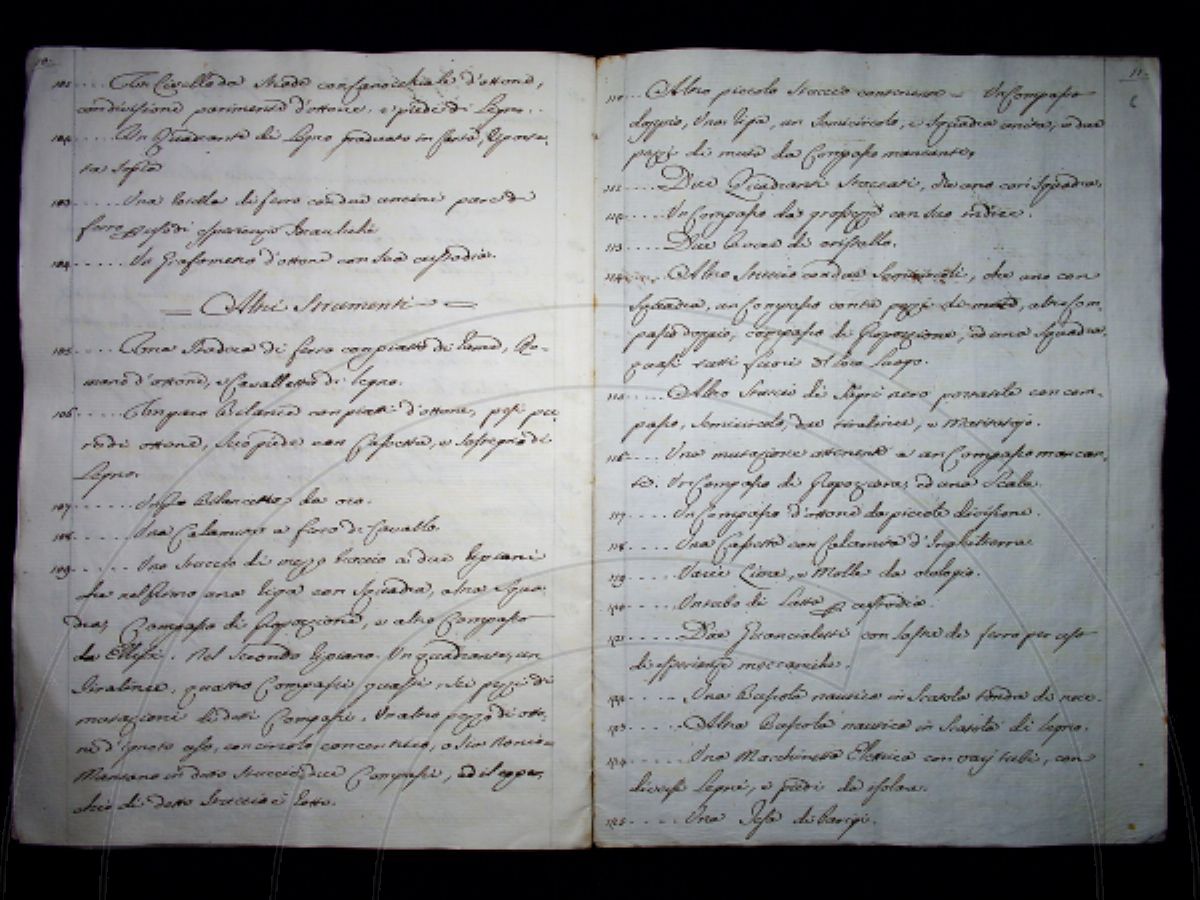 10
101 .... Un Livello da Strade con Cannocchiale d'ottone,
con divisione parimente d'ottone, e piede di Legno.
102 .... Un Quadrante di Legno graduato in Carta,
103 .... Una di ferro con due uncini pure di
ferro per usi di esperienze Idrauliche
104 ..... Un Grafometro d'ottone con sua custodia.
Altri Strumenti
105 .... Una Stadera di ferro con piatto di Rame, Ro-
mano d'ottone, e Cavalletto di legno.
106 ..... Un paro Bilancie con piatti d'ottone, pesi pu-
re di ottone, suo piede con Cassetta, e sostegno di
Legno.
107 ...... Bilancetta da oro.
108 ...... Una Calamita a ferro di Cavallo.
109 ..... Uno Stuccio di mezzo braccio a due Ripiani
una Riga con Squadra, altra Squa-
dra, Compasso di Proporzione, e altro Compasso
da Ellissi. Nel Secondo Ripiano. Un Quadrante, un
Tiralinee, quattro Compassi guasti, sei pezzi di
mutazioni di detti Compassi. Un altro pezzo di otto-
ne d'ignoto uso, con circolo concentrico, o sia Nonio.
Mancano in detto Stuccio due Compassi, ed il
di detto Stuccio è rotto.
11
6
110 ... Altro piccolo Stuccio contenente = Un Compasso
doppio, Una Riga, un Semicircolo, e Squadra unita, e due
pezzi di muta da Compasso mancante,
111 .... Due Quadranti Staccati, che uno con Squadra.
112 ..... Un Compasso da grossezze con suo indice.
113 ..... Due di cristallo.
114 ..... Altro Stuccio con due Semicircoli, che uno con
Squadra, un Compasso con tre pezzi di muta, altro Com-
passo doppio, compasso di Proporzione, ed una Squadra.
quasi tutti fuori del loro luogo.
115 .... Altro Stuccio di Sagrì nero portatile con com-
passo, Semicircolo, due tiralinee, e Matitatojo.
116 .... Una mutazione attenente a un Compasso mancan-
te. Un Compasso di Proporzione, ed una Scala.
117 .... Un Compasso d'ottone da piccole divisione.
118 .... Una Cassetta con Calamita d'Inghilterra
119 .... Varie Lime, e Molle da orologio.
120 .... Un tubo di Latta per custodia.
121 ..... Due Guancialetti con lastre di ferro per uso
di esperienze meccaniche.
122 .... Una Bussola nautica in Scatola tonda di noce.
123 .... Altra Bussola nautica in Scatola di legno.
124 .... Una Macchinetta Elettrica con varj tubi, con
diversi Legni, e piedi da isolare.
125 .... Una